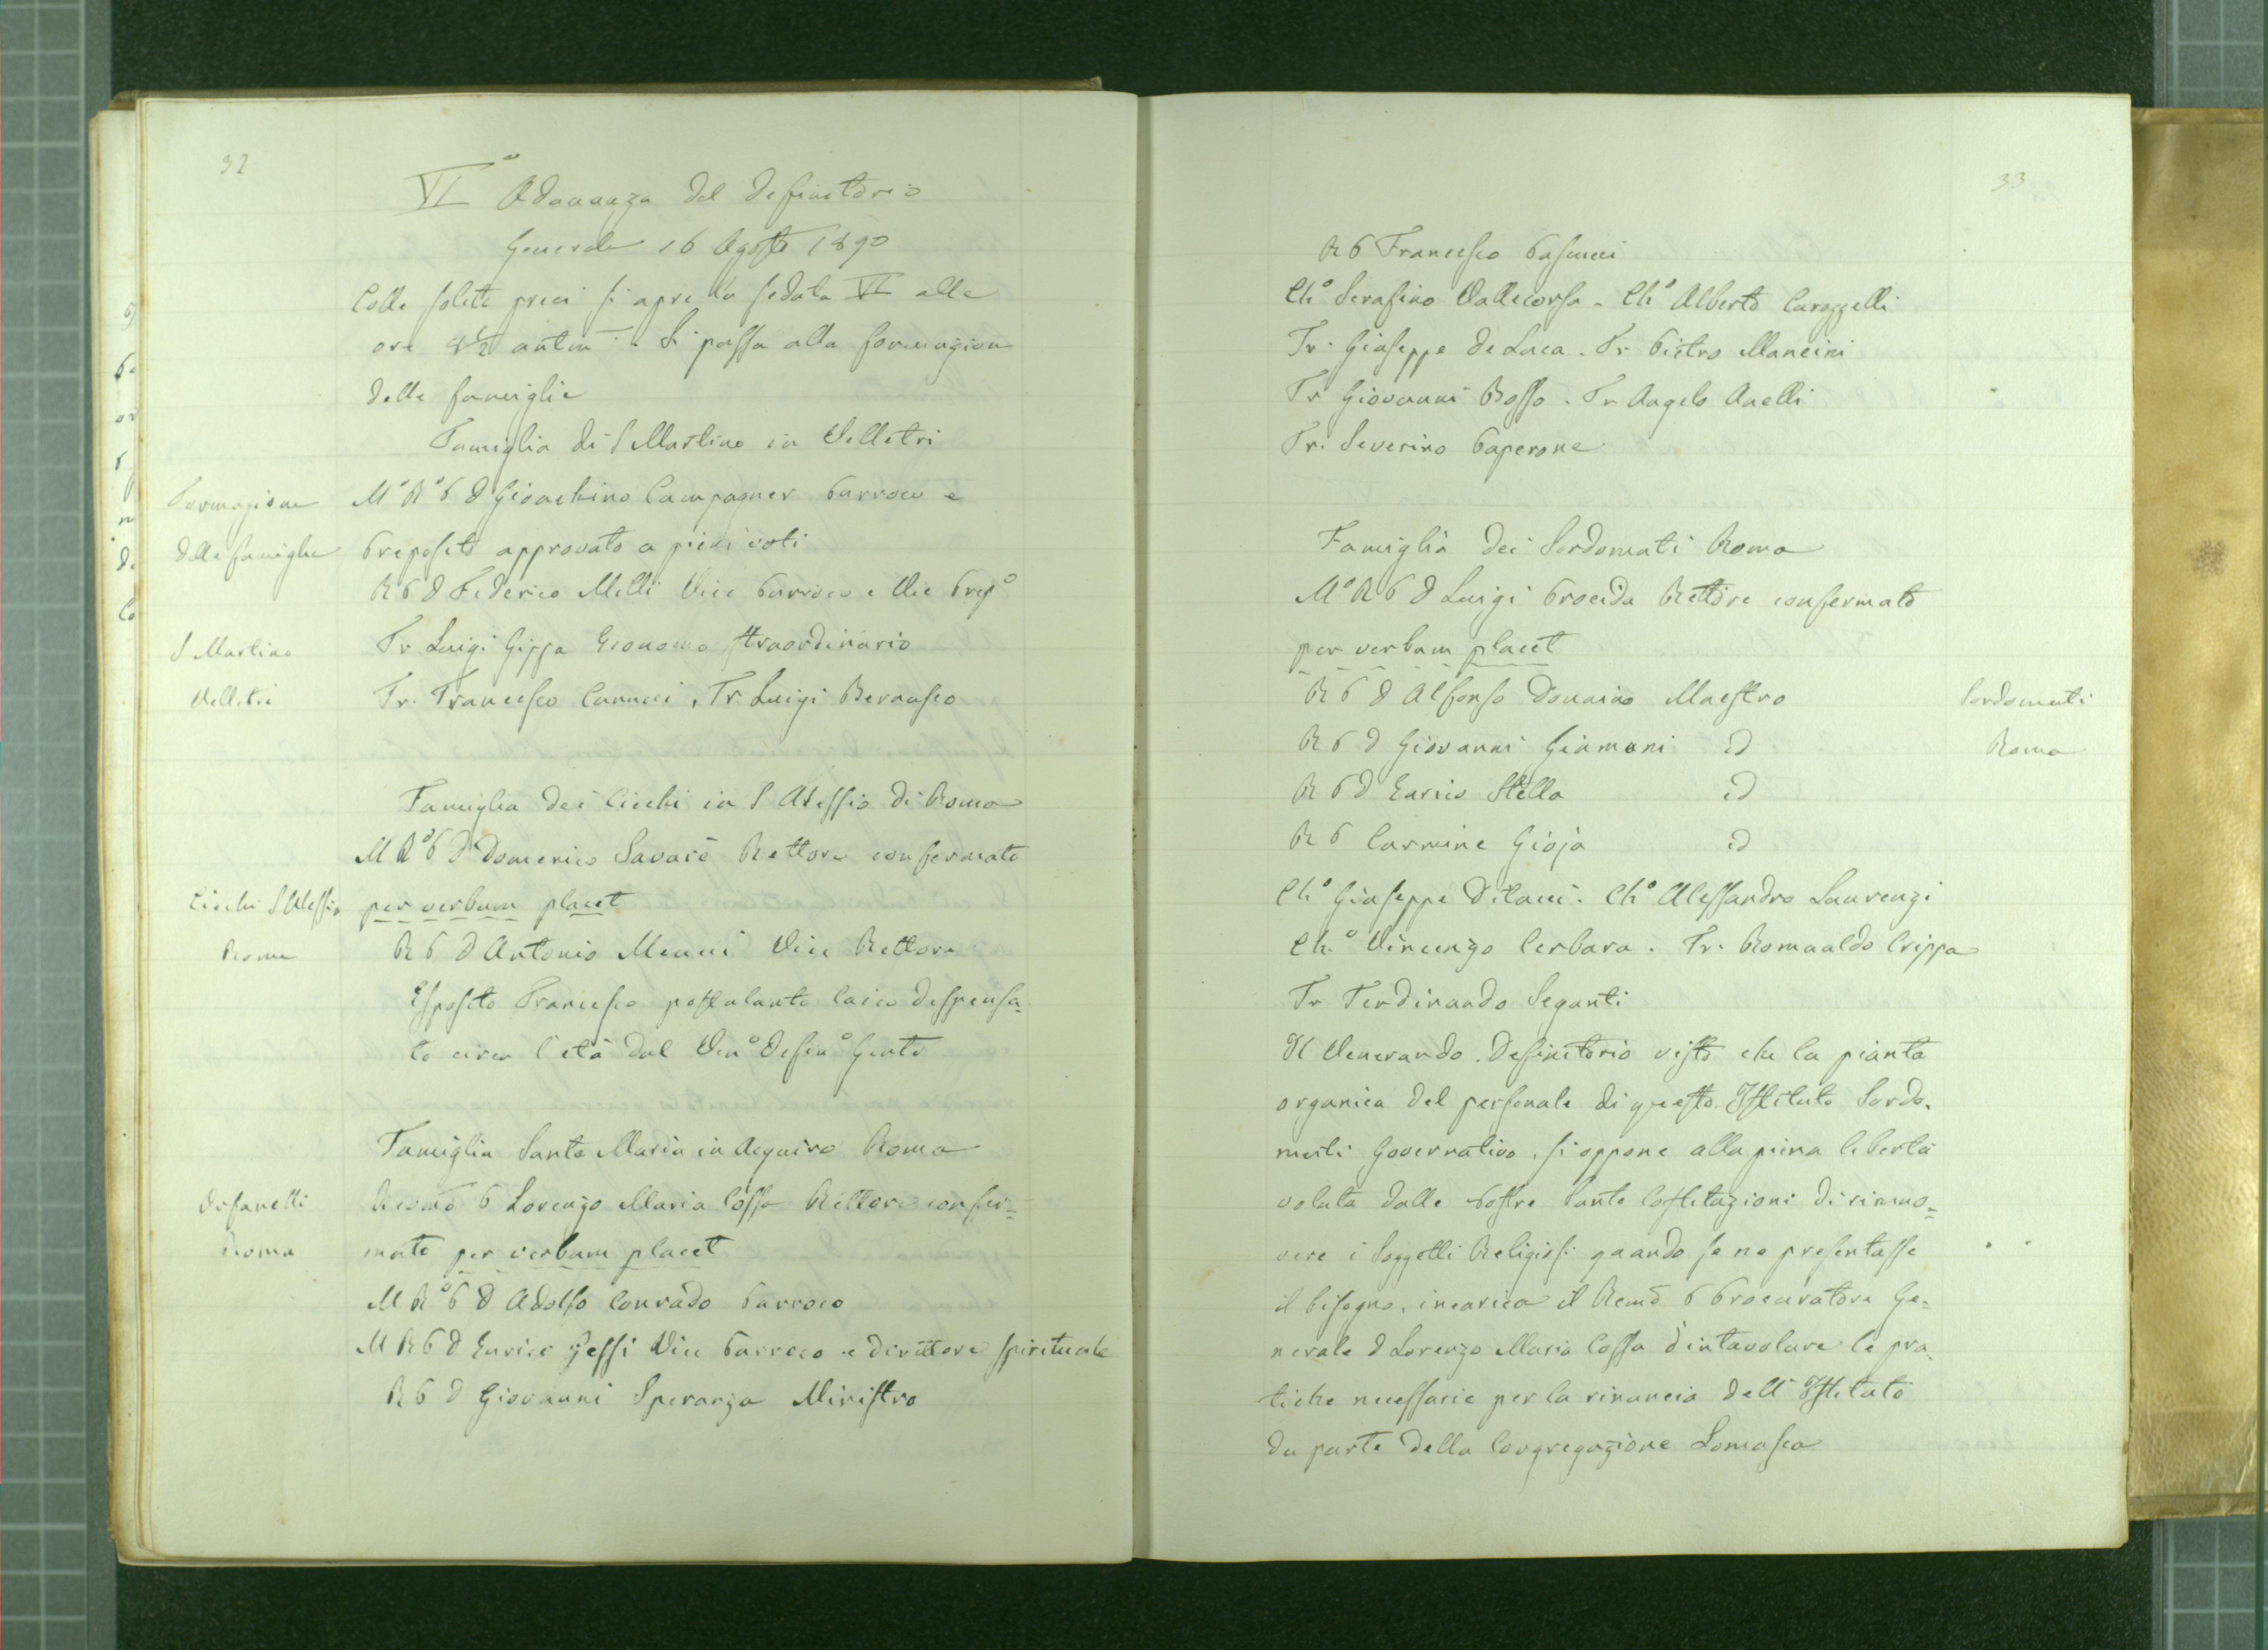 32
VIª Adunanza del Definitorio
Generale 16 Agosto 1890
Colle solite preci si apre la seduta VI alle
ore 8½ antm. Si passa alla formazione
delle famiglie
Famiglia di S Martino in Velletri
Formazione
delle famiglie
M° R° P D Gioachino Campagner Parroco e
Preposito approvato a pieni voti
R P D Federico Melli Vice Parroco e Vic Prep°
S Martino
Velletri
Fr Luigi Gippa Economo straordinario
Fr. Francesco Canucci, Fr Luigi Bernasco
Famiglia dei Ciechi in S Alessio di Roma
M R° P D Domenico Savarè Rettore confermato
Ciechi S Alessio
Roma
per verbum placet
R P D Antonio Menuci Vice Rettore
Esposito Francesco postulante laico dispensa=
to circa l'età dal Ven° Defin° Genle
Famiglia Santa Maria in Aquiro Roma
Orfanelli
Roma
Revmo P Lorenzo Maria Cossa Rettore confer=
mato per verbum placet
M R° P D Adolfo Conrado Parroco
M R P D Enrico Gessi Vice Parroco e direttore spirituale
R P D Giovanni Speranza Ministro
33
R P Francesco Pascucci
Ch° Serafino Vallecorsa - Ch° Alberto Carozzelli
Fr. Giuseppe De Luca. Fr Pietro Mancini
Fr Giovanni Bosso. Fr Angelo Anelli
Fr. Severino Paperone
Famiglia dei Sordomuti Roma
M° R P D Luigi Procida Rettore confermato
per verbum placet
R P D Alfonso Donnino Maestro
R P D Giovanni Giamoni id
R P D Enrico Stella id
R P Carmine Gioja id
Sordomuti
Roma
Ch° Giuseppe Ditucci. Ch° Alessandro Laurenzi
Ch.° Vincenzo Cerbara. Fr. Romualdo Crippa
Fr Ferdinando Seganti
Il Venerando Definitorio visto che la pianta
organica del personale di questo Istituto Sordo-
muti Governativo, si oppone alla piena libertà
voluta dalle nostre Sante Costituzioni di rimuo=
vere i Soggetti Religiosi quando se ne presentasse
il bisogno, incarica il Revmo P Procuratore Ge=
nerale D Lorenzo Maria Cossa d'intavolare le pra-
tiche necessarie per la rinuncia dell'Istituto
da parte della Congregazione Somasca